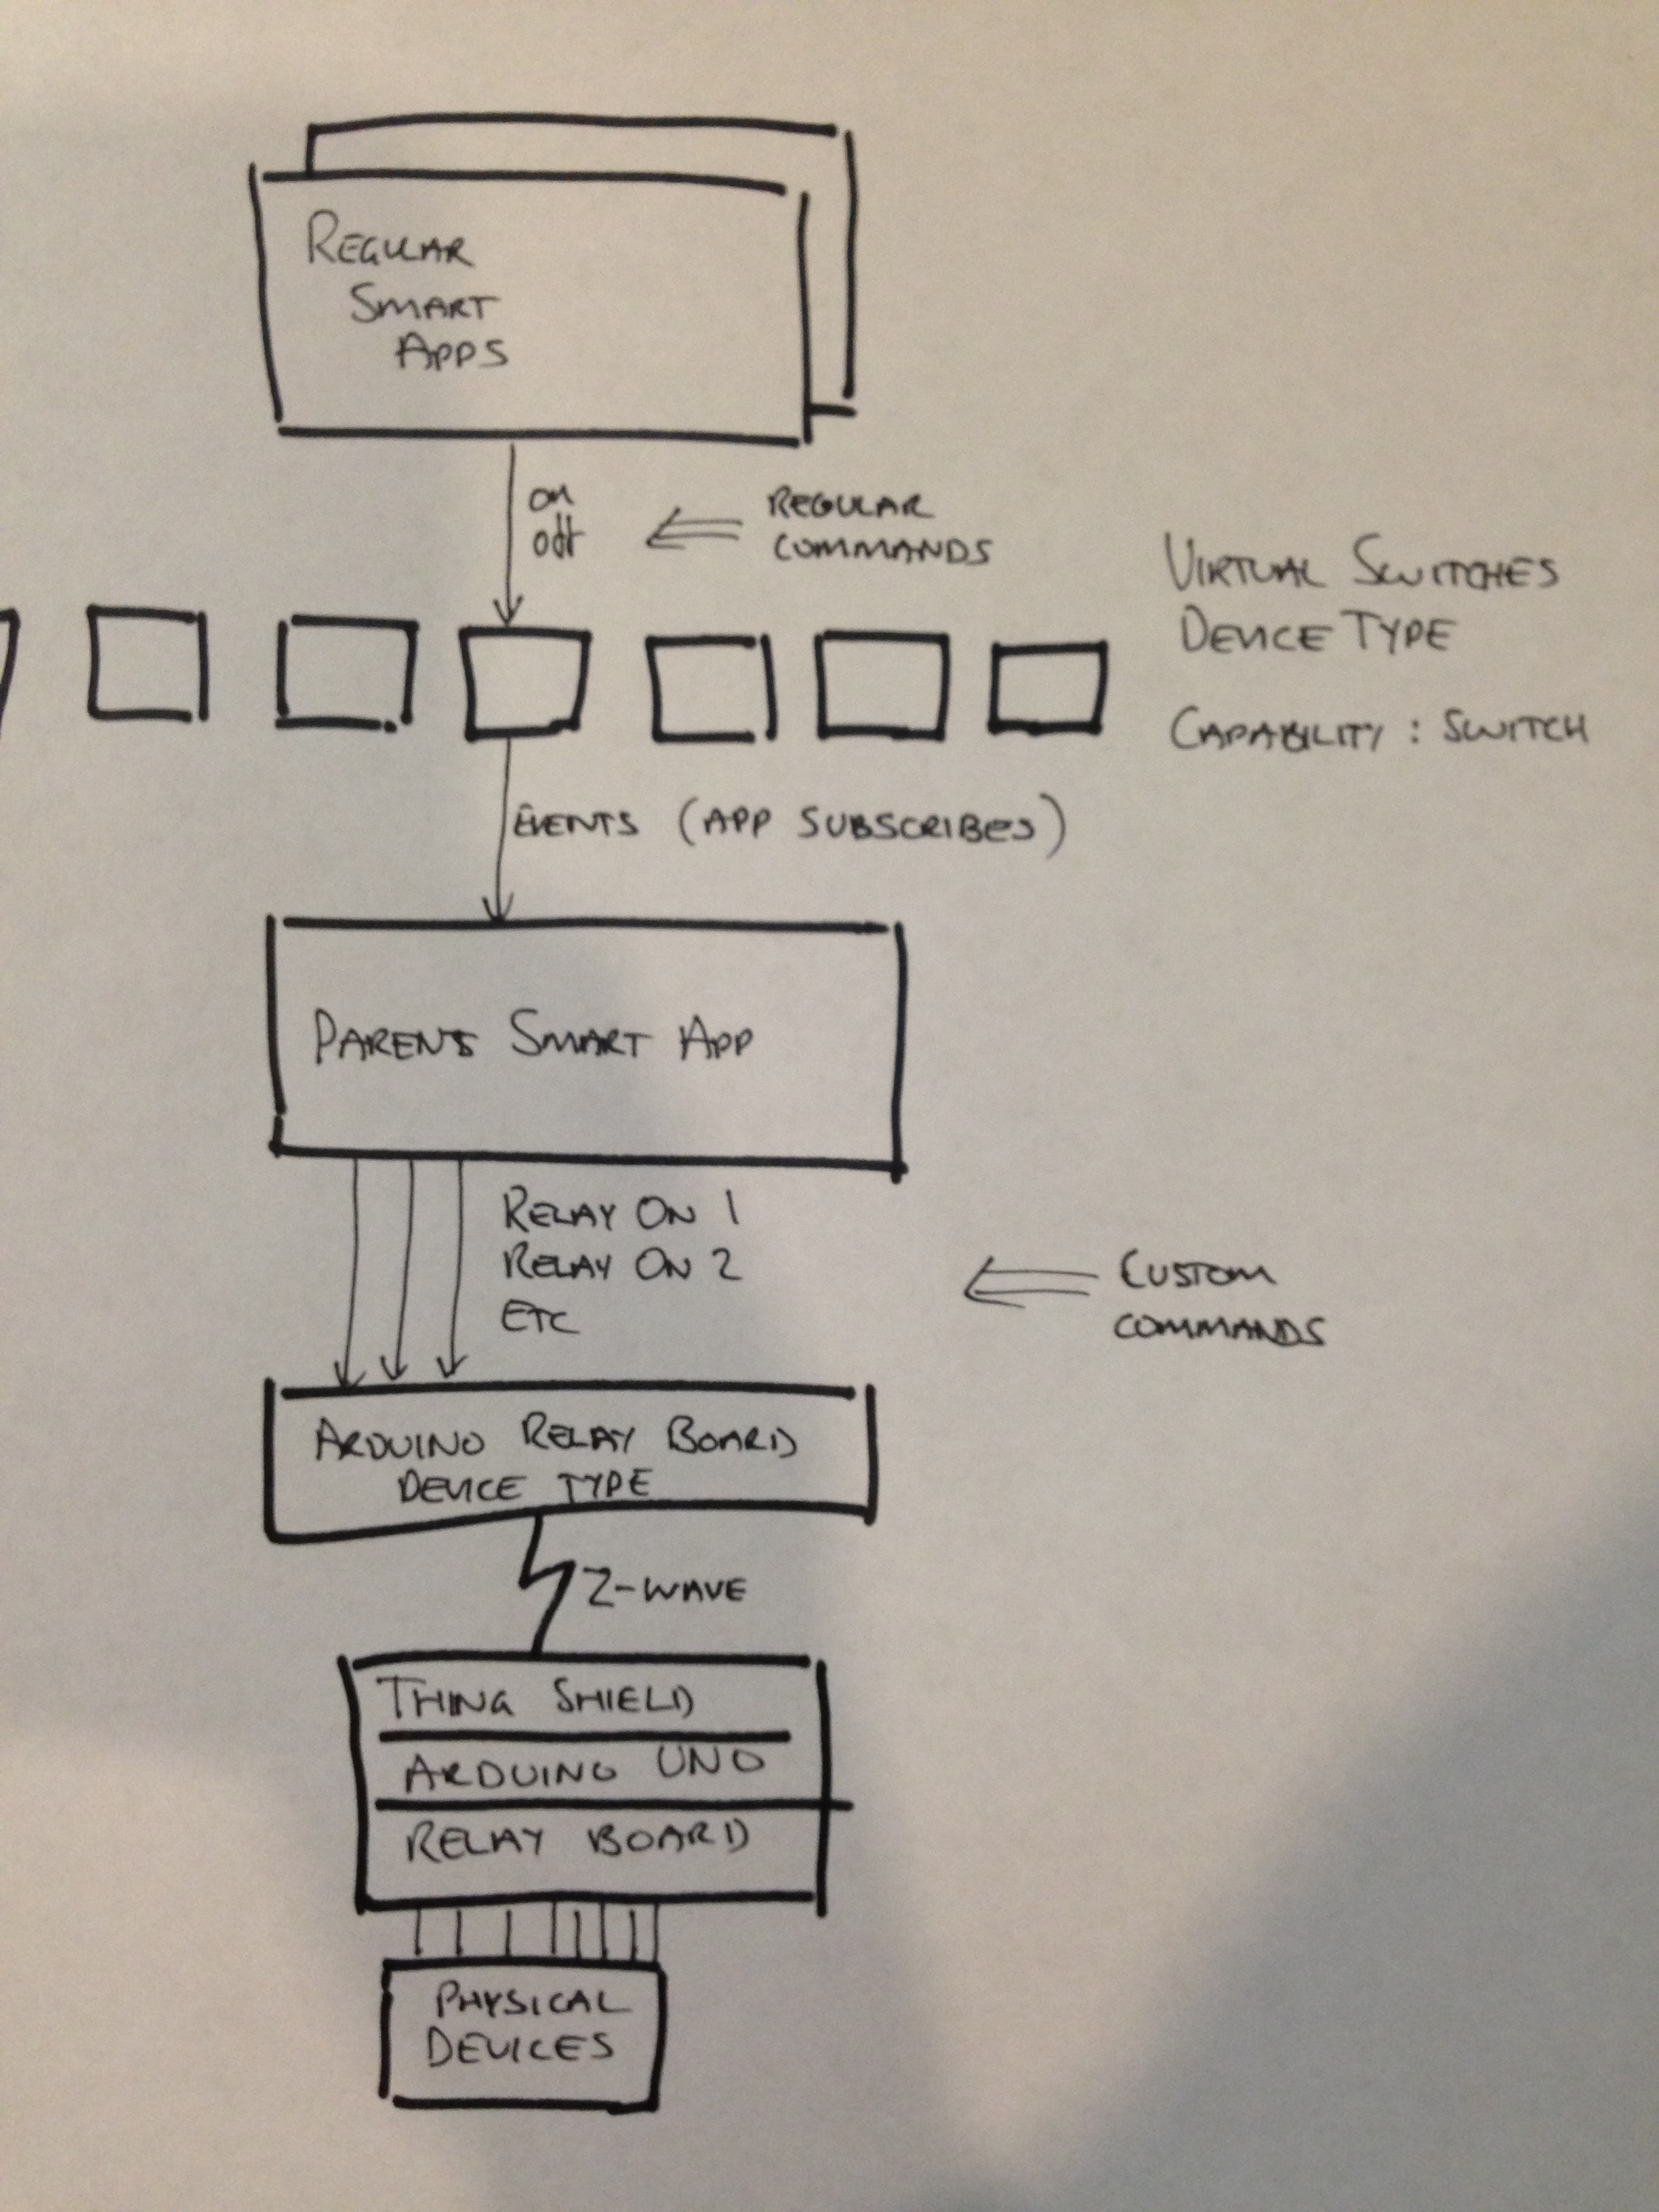 REGULAR
SMART
APPS
on
off
REGULAR
COMMANDS
VIRTUAL SWITCHES
DEVICE TYPE
CAPABILITY : SWITCH
EVENTS (APP SUBSCRIBES)
PARENT SMART APP
RELAY ON 1
RELAY ON 2
ETC
CUSTOM
COMMANDS
ARDUINO RELAY BOARD
DEVICE TYPE
Z-WAVE
THING SHIELD
ARDUINO UNO
RELAY BOARD
PHYSICAL
DEVICES